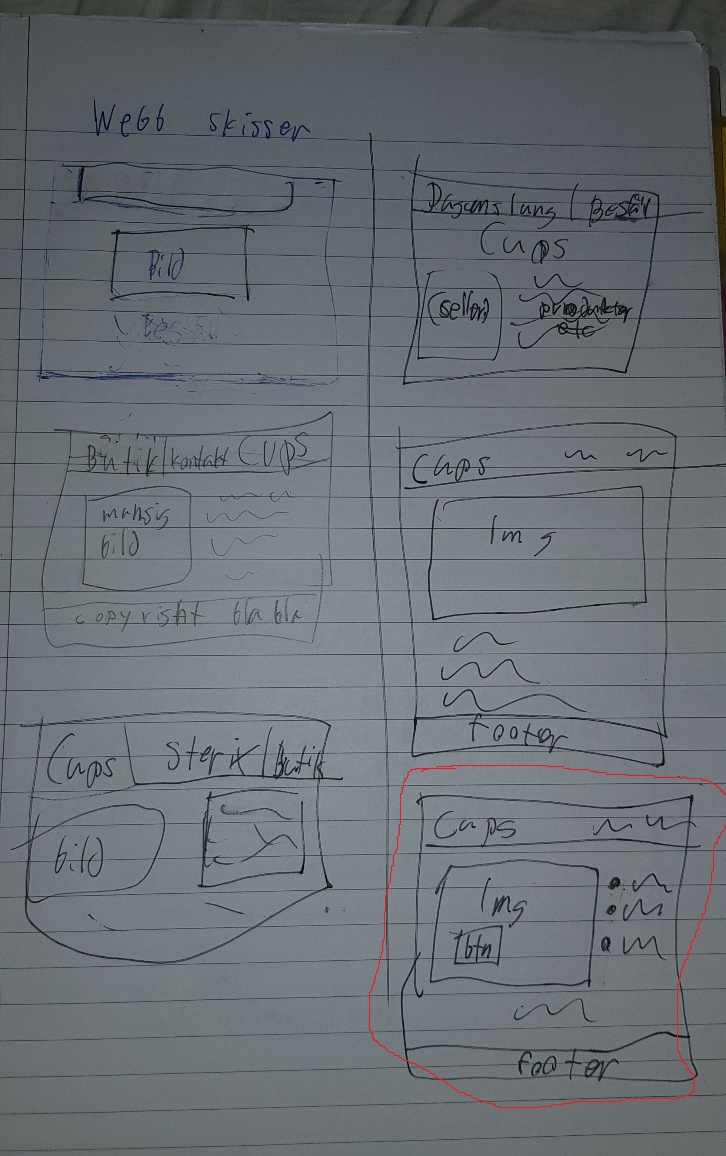 Webb skisser
Bild
Beställ
Butik | kontakt Cups
bild
copyright bla bla
Cups | Sterix | Butik
bild
Dagens lung | Beställ
Cups
produkter
etc
Cups
Img
footer
Cups
Img
btn
footer